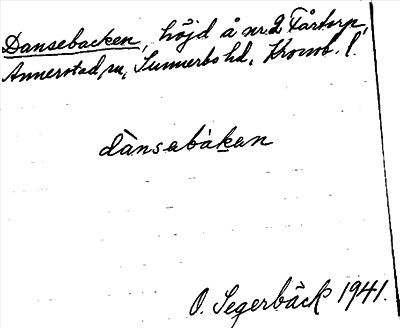 Dansebacken, höjd å nr 2 Fårtorp,
Annerstad sn, Sunnerbo hd, Kronob. l.
dànsabàkan
O. Segerbäck 1941.